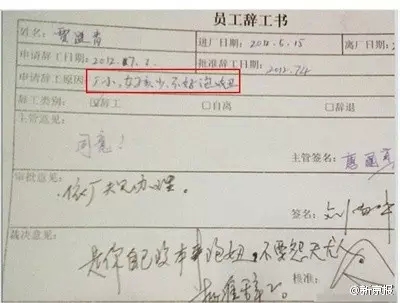 员工辞工书
姓名: 进厂日期: 2011.6.15 离厂日
申请辞工日期: 2012.07.2. 批准辞工日期: 2012.7.4
申请辞工原因: 厂小、女孩少、不好泡妞
辞工类别: ☑辞工 □自离 □辞退
主管意见:
同意!
主管签名:
审批意见:
依厂规办理。
签名:
裁决意见:
是你自己没本事泡妞,不要怨天尤人
批准辞工 核准:
@新京报